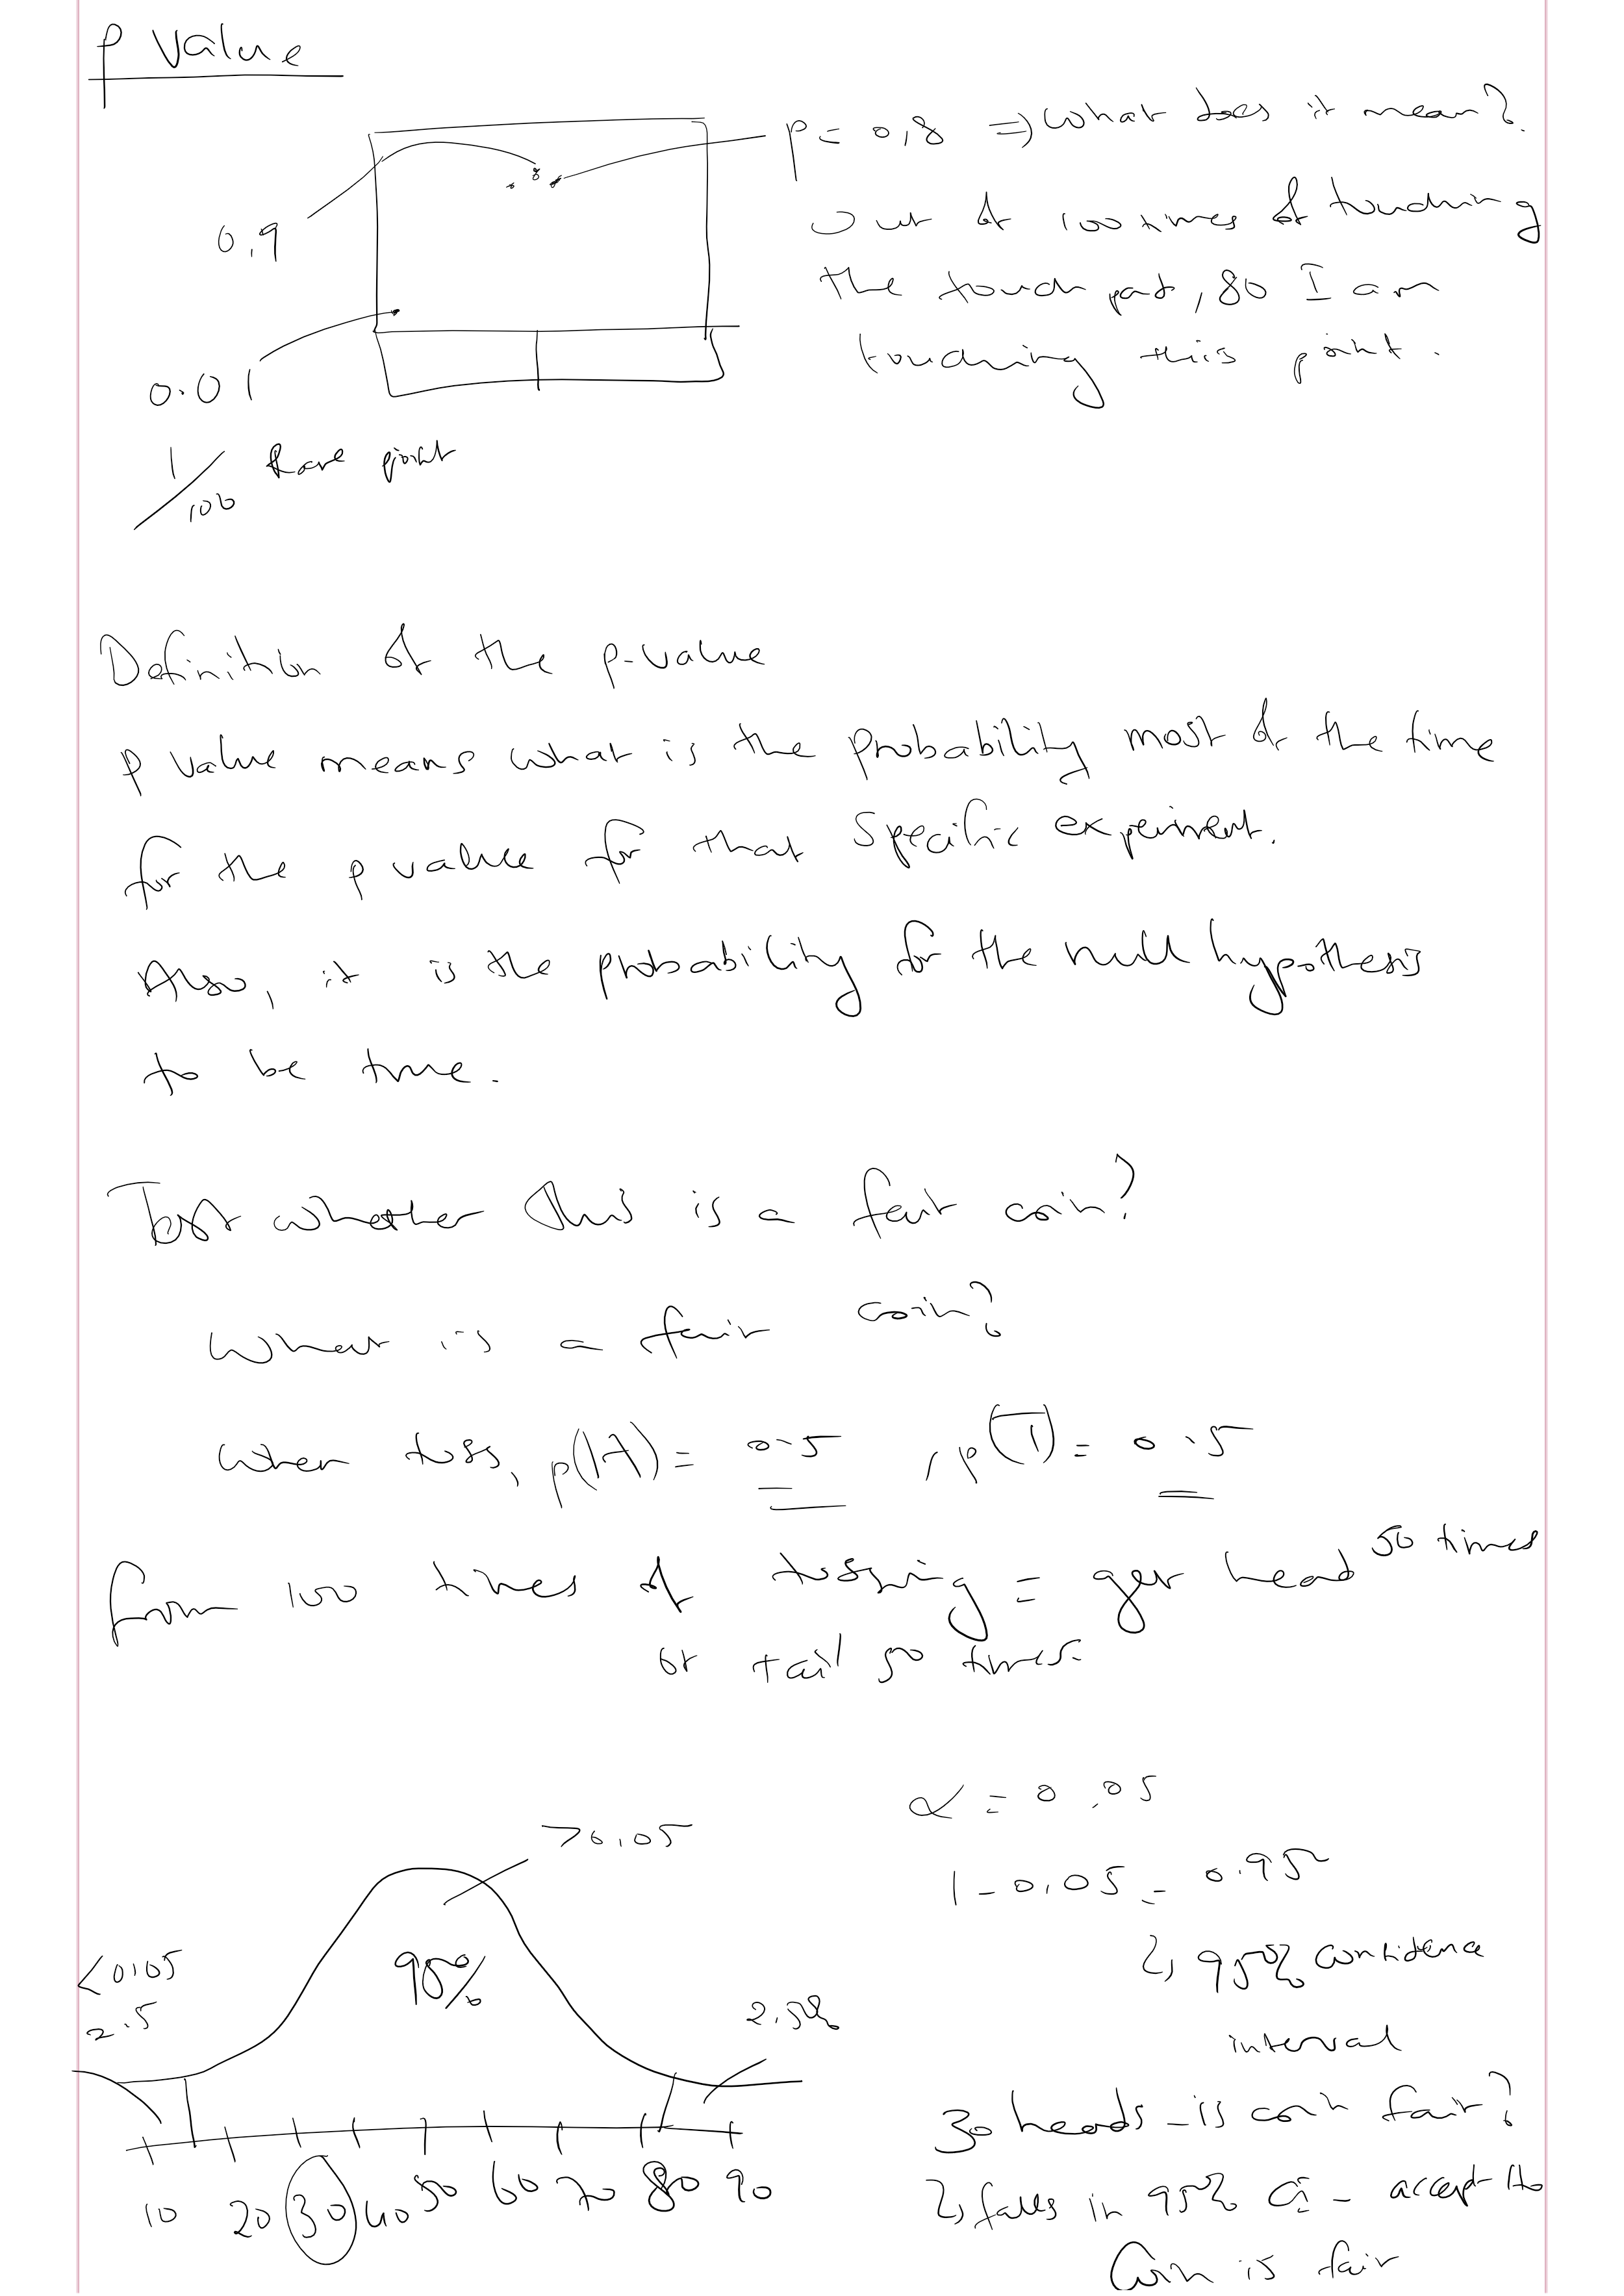 p value
p = 0,8 => What does it mean?
out of 100 times of touching
the touch pad, 80 I am
touching this point.
0,9
0.01
1/100 Rare point
Definition of the p-value
p value means what is the probability most of the time
for the p value for that specific experiment.
Also, it is the probability for the null hypothesis
to be true.
Test whether this is a fair coin?
What is a fair coin?
When toss, p(H) = 0.5 , p(T) = 0.5
from 100 times of tossing = get head 50 times
or tail 50 times.
α = 0.05
>0,05
1 - 0,05 = 0.95
<0,05
95%
↳ 95% confidence
interval
2.5
2.5%
30 heads - is coin fair?
10 20 30 40 50 60 70 80 90
↳ falls in 95% CI - accept H0
Coin is fair